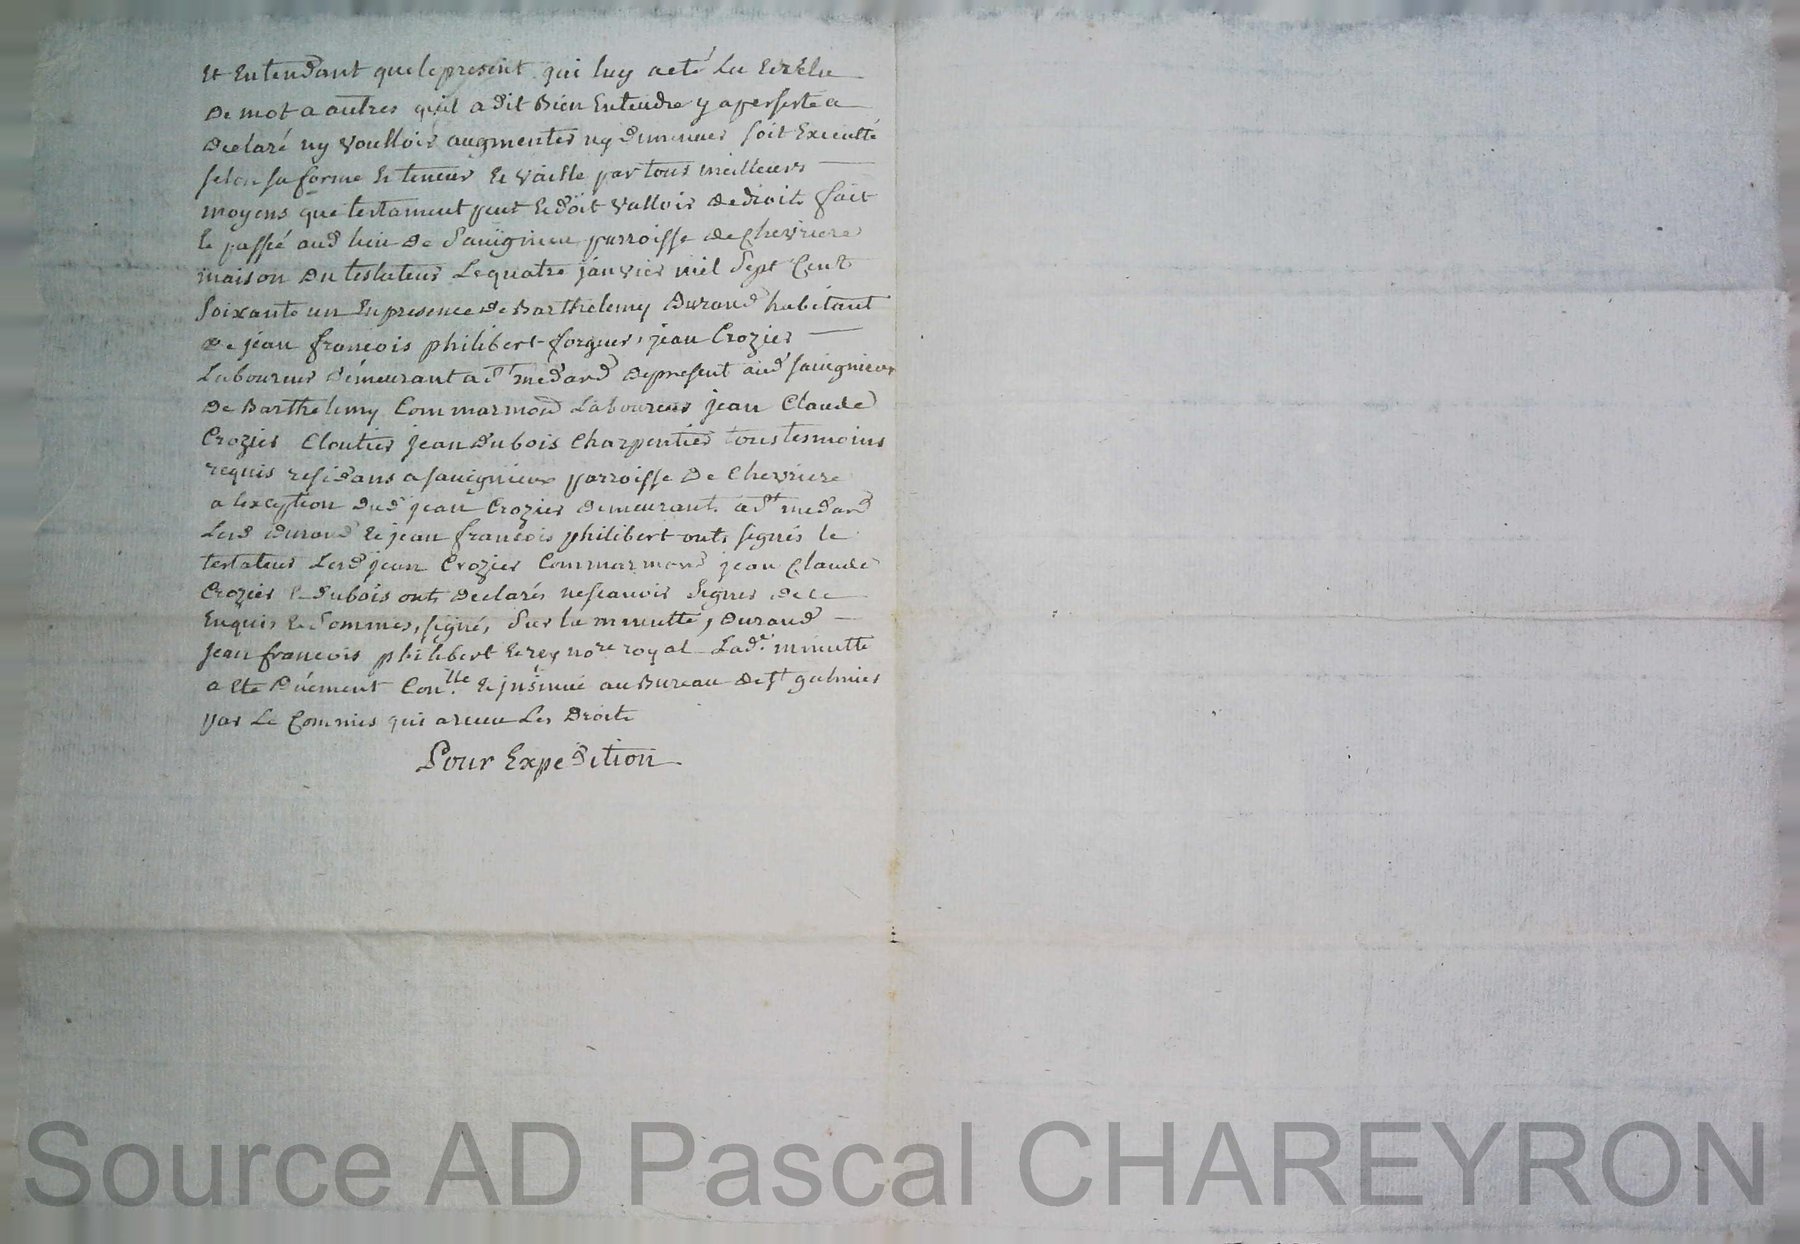 Et Entendant que le present qui luy a eté Lu Et Relu
De mot a autres qu'il a dit Bien Entendre y a persisté a
Declaré ny voulloir augmenter ny diminuer soit Executté
selon sa forme Et teneur Et vaille par tous meilleurs
moyens que testament peut Et doit valloir de droit fait
Et passé aud lieu De Sauignieu parroisse de Chevriere
maison Du testateur Le quatre janvier mil Sept Cent
Soixante un En presence De Barthelemy Durand habitant
De jean francois philibert forgeur, jean Crozier
Laboureur demeurant a St medard de present aud sauignieux
De Barthelemy Commarmond Laboureur jean Claude
Crozier Cloutier jean Dubois Charpentier tous tesmoins
requis residans a sauignieux parroisse De Chevriere
a lexception dud jean Crozier demeurant a St medard
Lesd durand Et jean francois philibert ont signés le
testateur Lesd jean Crozier Commarmond jean Claude
Crozier Et dubois ont declarés ne scauoir Signer de ce
Enquis Et Sommés, signé, Sur la minutte, Durand
Jean francois philibert Et rey nore royal Lade minutte
a Eté Duement Conlle Et jnsinué au Bureau de St galmier
par Le Commis qui a receu Les Droits
Pour Expedition
Source AD Pascal CHAREYRON